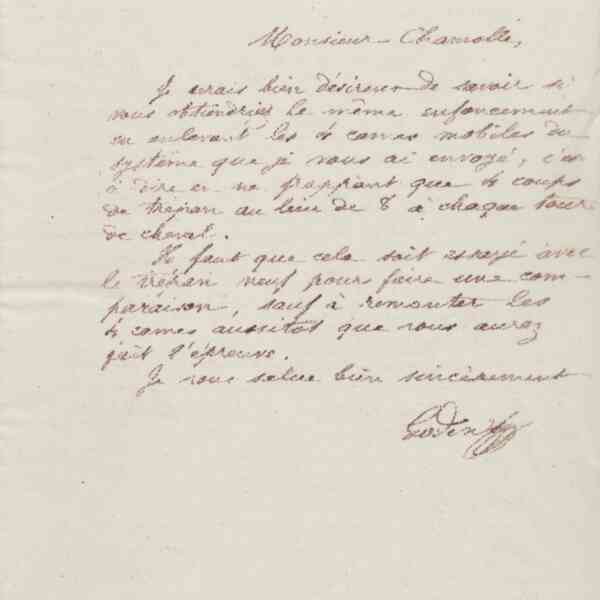 Monsieur Chamolle,
Je serais bien désireux de savoir si
vous obtiendriez le même enfoncement
en enlevant les 4 cames mobiles du
système que je vous ai envoyé, c'est
à dire en ne frappant que 4 coups
de trépan au lieu de 8 à chaque tour
de cheval.
Il faut que cela soit essayé avec
le trépan neuf pour faire une com-
paraison, sauf à remonter les
4 cames aussitôt que vous aurez
fait l'épreuve.
Je vous salue bien sincèrement
Godin